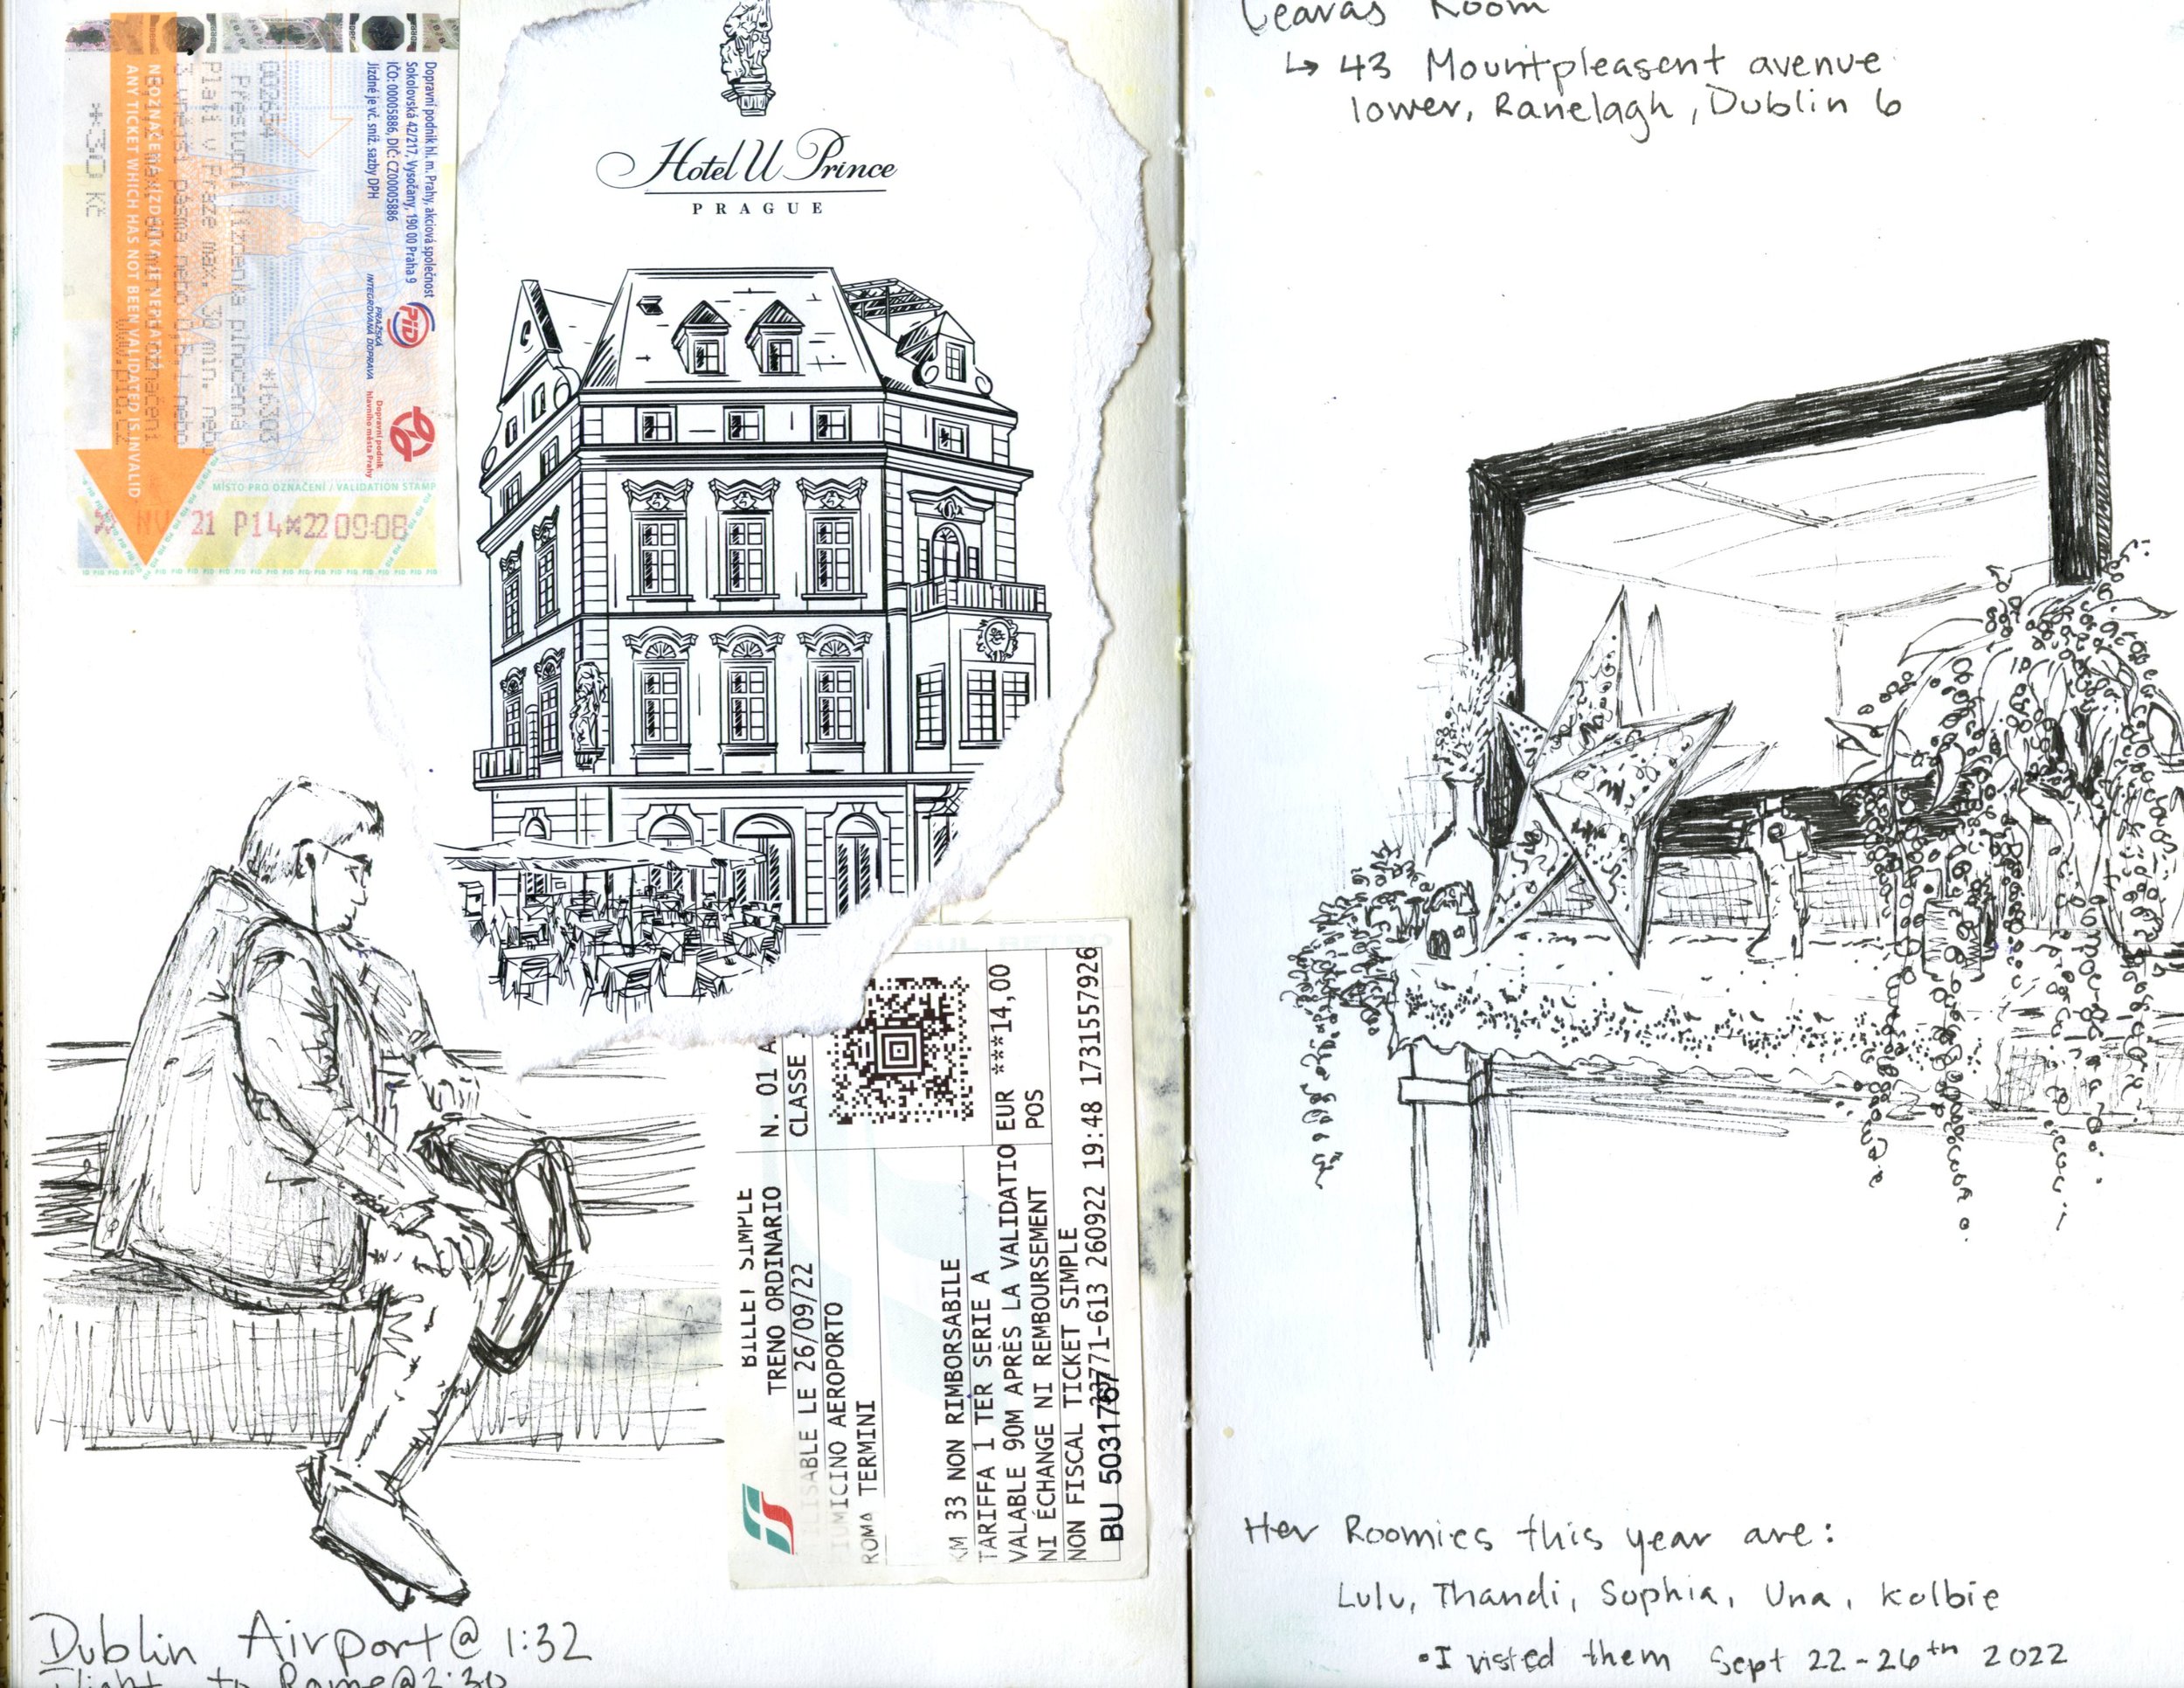 Dopravní podnik hl. m. Prahy, akciová společnost
Sokolovská 42/217, Vysočany, 190 00 Praha 9
IČO: 00005886, DIČ: CZ00005886
Jízdné je vč. sníž. sazby DPH
PID
PRAŽSKÁ
INTEGROVANÁ DOPRAVA
Dopravní podnik
hlavního města Prahy
002654 *16303
Přestupní jízdenka plnocenná
Platí v Praze max. 30 min. nebo
3 vnější pásma nebo 0,B,1 nebo
www.pid.cz
**30 Kč
NEOZNAČENÁ JÍZDENKA JE NEPLATNÁ
ANY TICKET WHICH HAS NOT BEEN VALIDATED IS INVALID
MÍSTO PRO OZNAČENÍ / VALIDATION STAMP
21 P14 22 09:08
Hotel U Prince
PRAGUE
BILLET SIMPLE
TRENO ORDINARIO
N. 01 A
CLASSE
ILISABLE LE 26/09/22
IUMICINO AEROPORTO
ROMA TERMINI
KM 33 NON RIMBORSABILE
TARIFFA 1 TER SERIE A
EUR ***14,00
VALABLE 90M APRÈS LA VALIDATIO
POS
NI ÉCHANGE NI REMBOURSEMENT
NON FISCAL TICKET SIMPLE
771-613 260922 19:48 1731557926
BU 5031767
Dublin Airport @ 1:32
Flight to Rome @ 2:30
Room
↳ 43 Mountpleasent avenue
lower, Ranelagh, Dublin 6
Her Roomies this year are:
Lulu, Thandi, Sophia, Una, Kolbie
•I visted them Sept 22-26th 2022